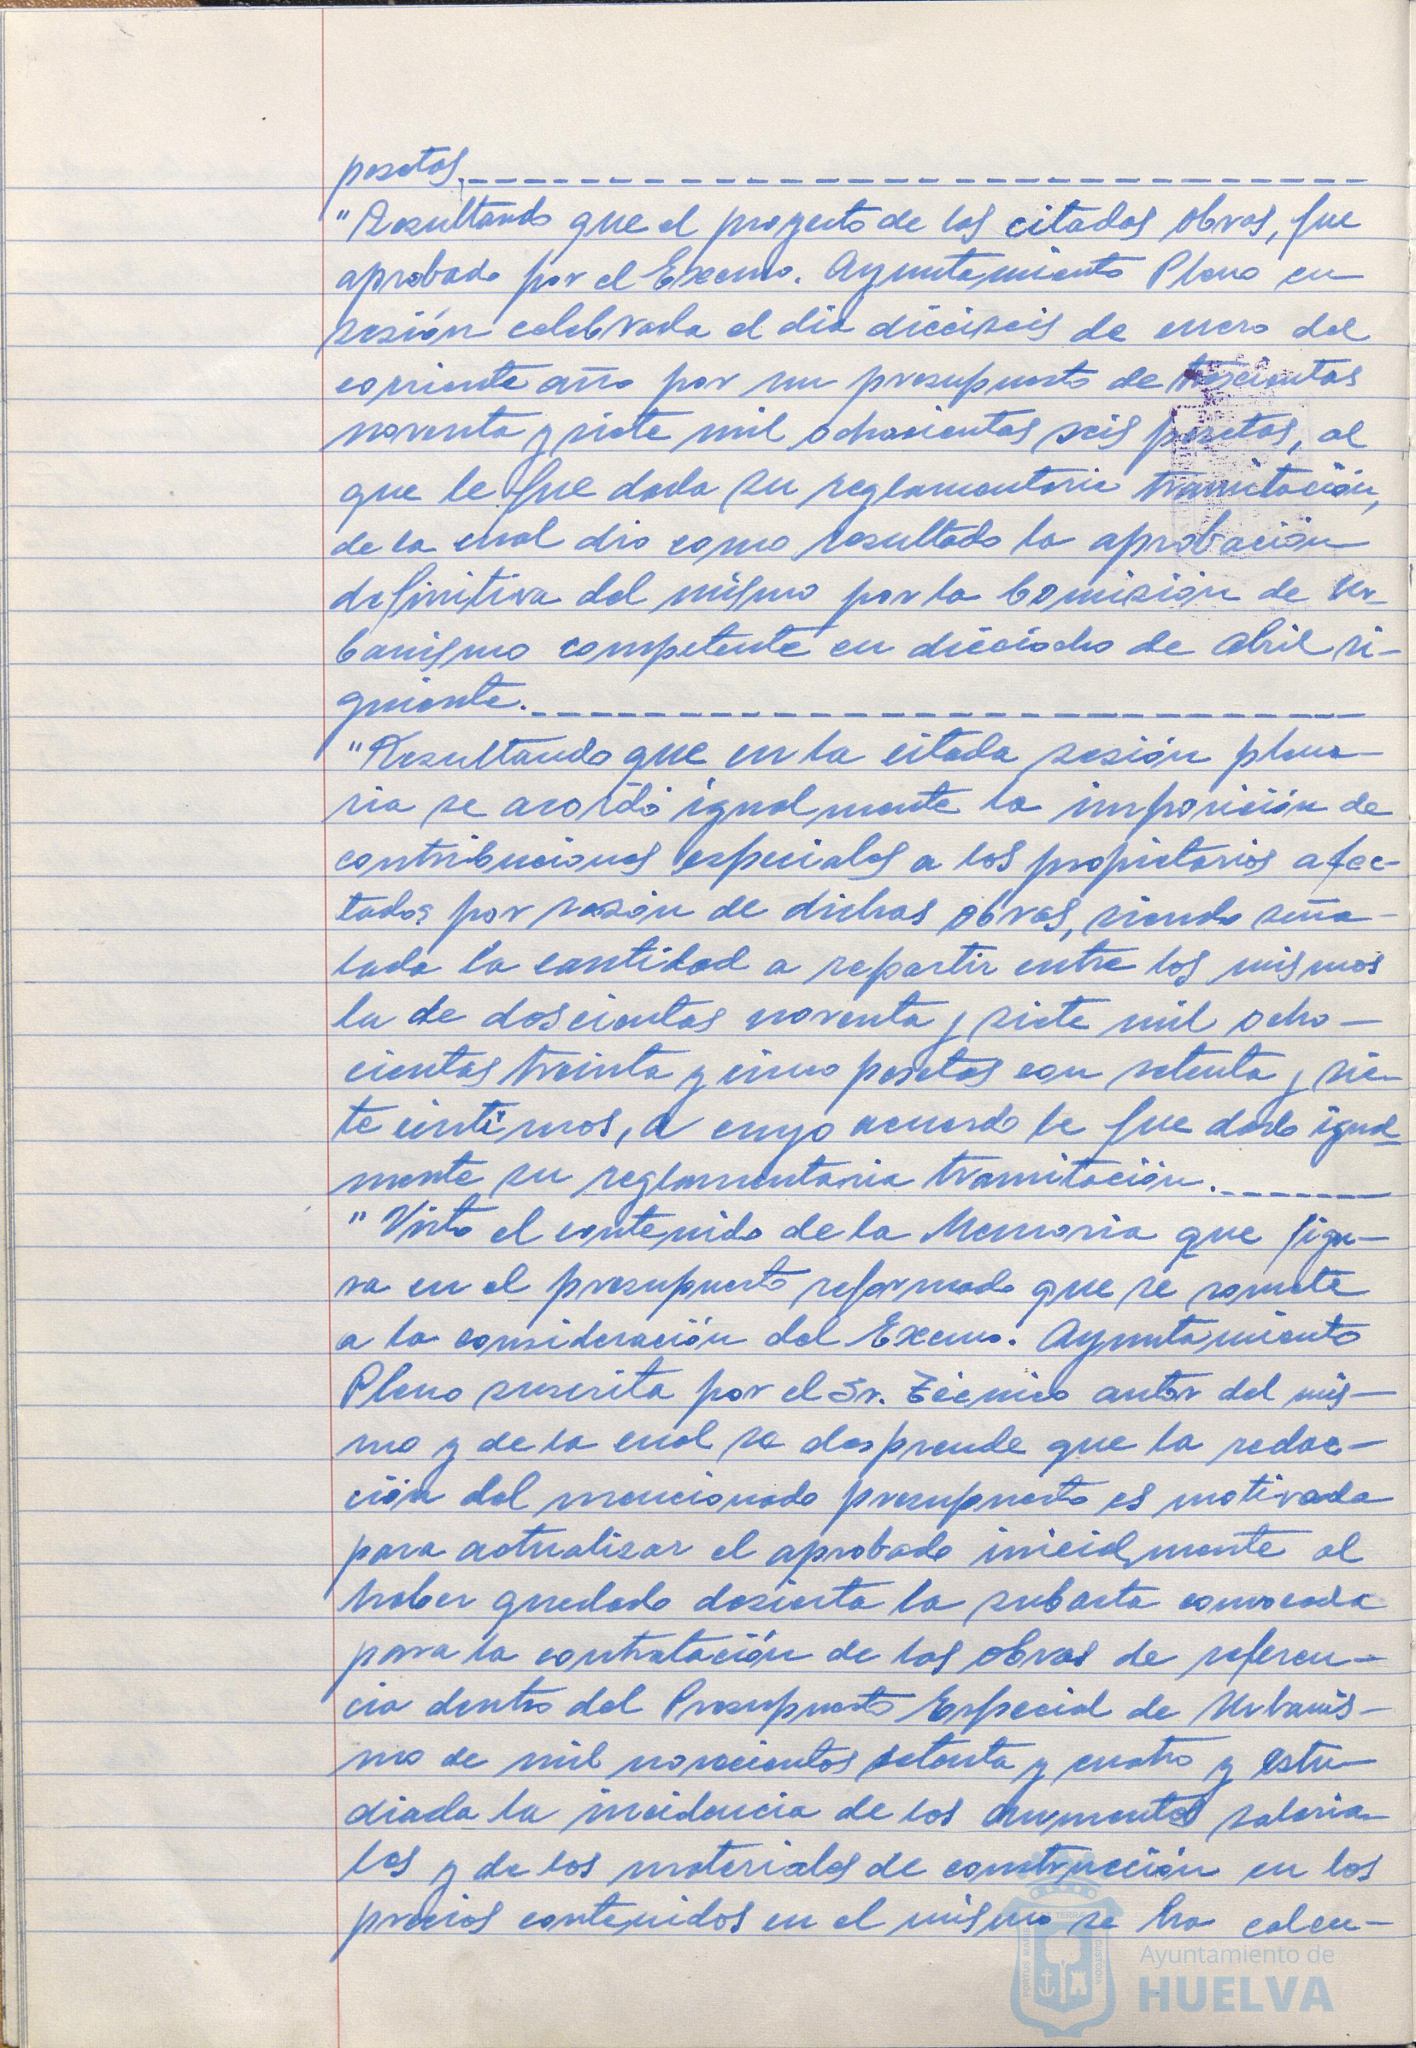 pesetas.
"Resultando que el proyecto de las citadas obras, fue
aprobado por el Excmo. Ayuntamiento Pleno en
sesión celebrada el dia dieciseis de enero del
corriente año por un presupuesto de trescientas
noventa y siete mil ochocientas seis pesetas, al
que le fue dada su reglamentaria tramitación,
de la cual dio como resultado la aprobación
definitiva del mismo por la Comisión de Ur-
banismo competente en dieciocho de abril si-
guiente.
"Resultando que en la citada sesión plena-
ria se acordó igualmente la imposición de
contribuciones especiales a los propietarios afec-
tados por razón de dichas obras, siendo seña-
lada la cantidad a repartir entre los mismos
la de doscientas noventa y siete mil ocho-
cientas treinta y cinco pesetas con setenta y sie-
te centimos, a cuyo acuerdo le fue dado igual
mente su reglamentaria tramitación.
"Visto el contenido de la Memoria que figu-
ra en el presupuesto reformado que se somete
a la consideración del Excmo. Ayuntamiento
Pleno suscrita por el Sr. Técnico autor del mis-
mo y de la cual se desprende que la redac-
ción del mencionado presupuesto es motivada
para actualizar el aprobado inicialmente al
haber quedado desierta la subasta convocada
para la contratación de las obras de referen-
cia dentro del Presupuesto Especial de Urbanis-
mo de mil novecientos setenta y cuatro y estu-
diada la incidencia de los aumentos salaria-
les y de los materiales de construcción en los
precios contenidos en el mismo se ha calcu-
Ayuntamiento de
HUELVA